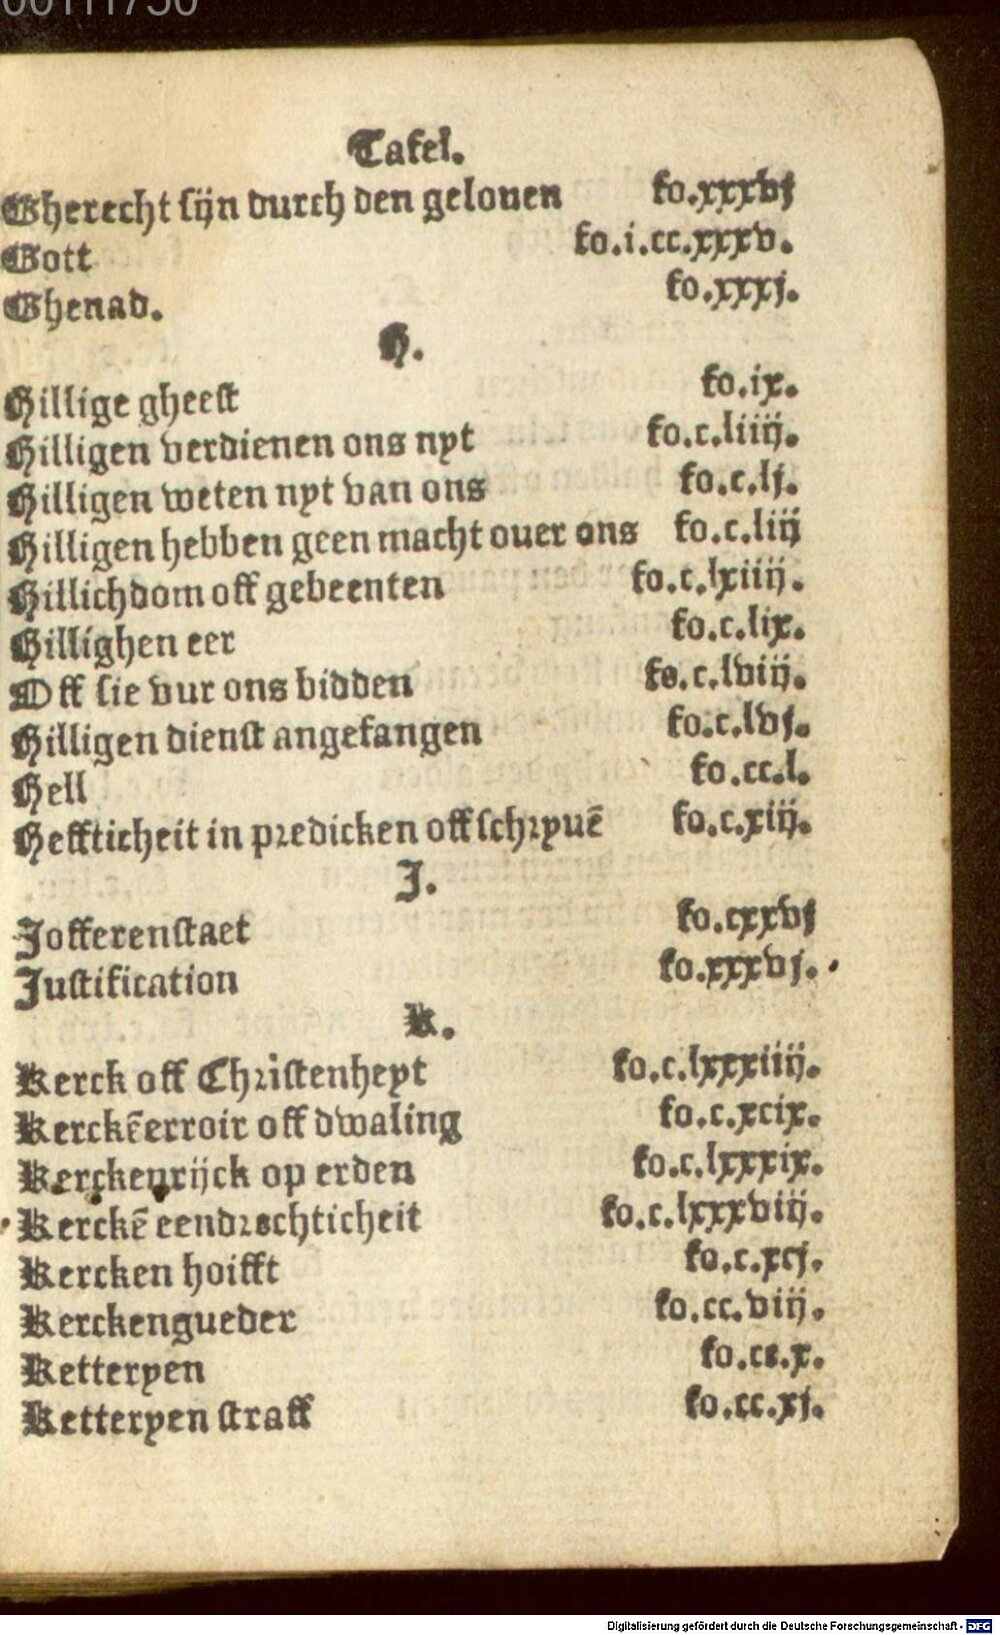 Tafel.
Gherecht sijn durch den gelouen fo.xxxvj
Gott fo.i.cc.xxxv.
Ghenad. fo.xxxj.
H.
Hillige gheest fo.ix.
Hilligen verdienen ons nyt fo.c.liiij.
Hilligen weten nyt van ons fo.c.lj.
Hilligen hebben geen macht ouer ons fo.c.liij
Hillichdom off gebeenten fo.c.lxiiij.
Hillighen eer fo.c.lix.
Off sie vur ons bidden fo.c.lviij.
Hilligen dienst angefangen fo.c.lvj.
Hell fo.cc.l.
Heffticheit in predicken off schryuē fo.c.xiij.
J.
Jofferenstaet fo.cxxvj
Justification fo.xxxvj.
K.
Kerck off Christenheyt fo.c.lxxxiiij.
Kerckēerroir off dwaling fo.c.xcix.
Kerckenrijck op erden fo.c.lxxxix.
Kerckē eendrechticheit fo.c.lxxxviij.
Kercken hoifft fo.c.xcj.
Kerckengueder fo.cc.viij.
Ketteryen fo.cc.x.
Ketteryen straff fo.cc.xj.
Digitalisierung gefördert durch die Deutsche Forschungsgemeinschaft - DFG